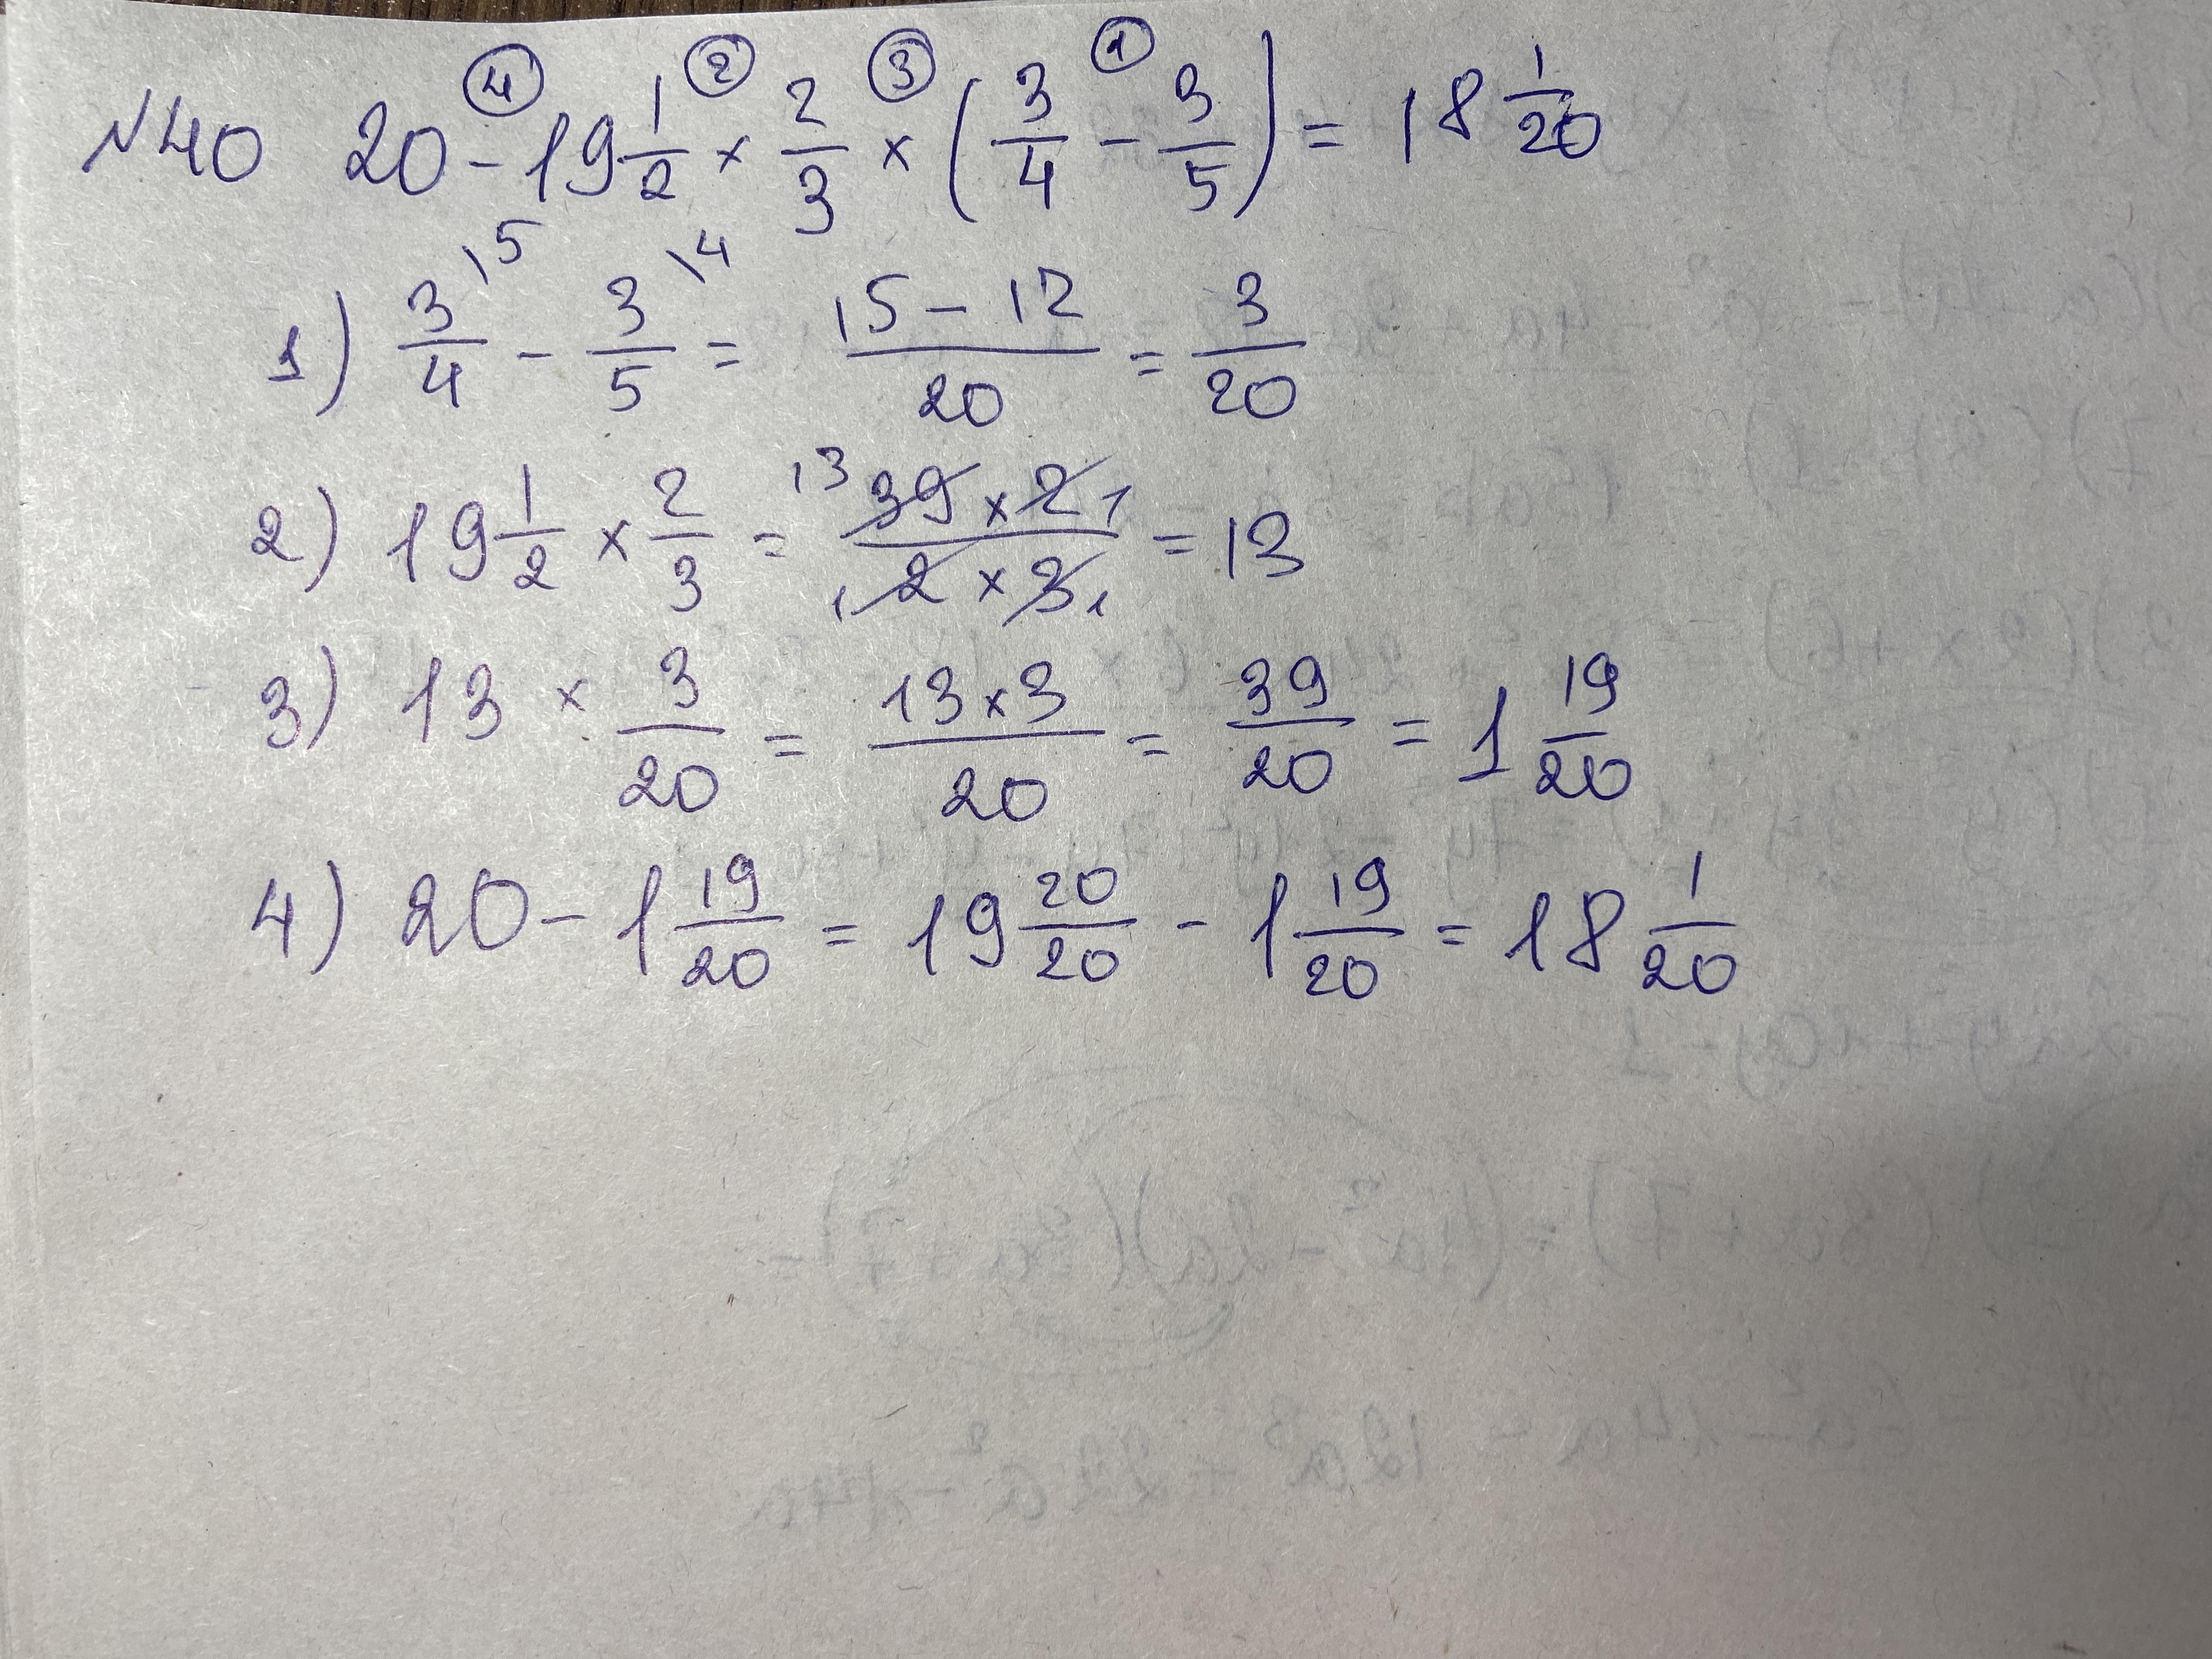 №40 20 - 19 1/2 × 2/3 × (3/4 - 3/5) = 18 1/20
④ ② ③ ①
1) 3/4 \5 - 3/5 \4 = (15 - 12)/20 = 3/20
2) 19 1/2 × 2/3 = 13 (39 × 2 1)/(1 2 × 3 1) = 13
3) 13 × 3/20 = (13 × 3)/20 = 39/20 = 1 19/20
4) 20 - 1 19/20 = 19 20/20 - 1 19/20 = 18 1/20